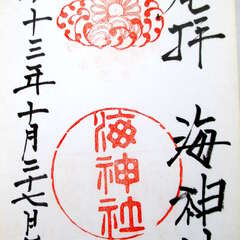 拝
海神
海神社
十三年十月二十七日